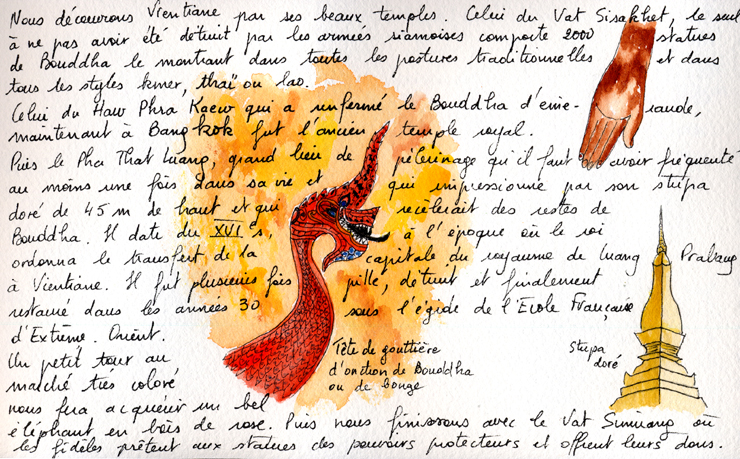 Nous découvrons Vientiane par ses beaux temples. Celui du Vat Sisakhet, le seul
à ne pas avoir été détruit par les armées siamoises comporte 2000 statues
de Bouddha le montrant dans toutes les postures traditionnelles et dans
tous les styles kmer, thaï ou lao.
Celui du Haw Phra Kaew qui a renfermé le Bouddha d'éme- raude,
maintenant à Bangkok fut l'ancien temple royal.
Puis le Pha That Luang, grand lieu de pèlerinage qu'il faut avoir fréquenté
au moins une fois dans sa vie et qui impressionne par son stupa
doré de 45 m de haut et qui recèlerait des restes de
Bouddha. Il date du XVI e s, à l'époque où le roi
ordonna le transfert de la capitale du royaume de Luang Prabang
à Vientiane. Il fut plusieurs fois pillé, détruit et finalement
restauré dans les années 30 sous l'égide de l'Ecole Française
d'Extrême. Orient.
Un petit tour au
marché très coloré
nous fera acquérir un bel
éléphant en bois de rose. Puis nous finissons avec le Vat Simuang où
les fidèles prêtent aux statues des pouvoirs protecteurs et offrent leurs dons.
Tête de gouttière
d'onction de Bouddha
ou de bonze
Stupa
doré